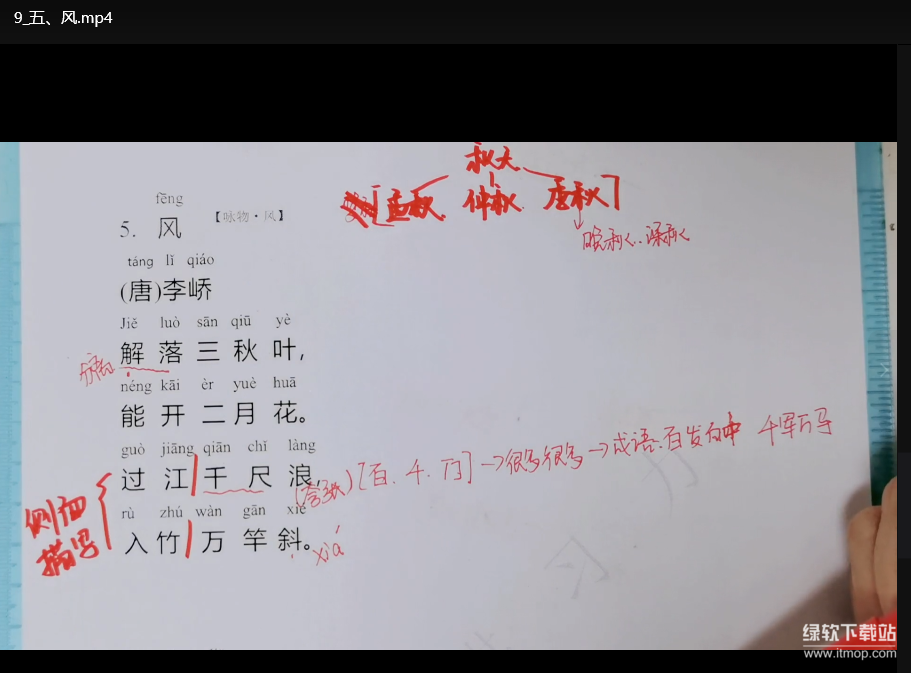 9_五、风.mp4
秋天
孟秋 仲秋 季秋
晚秋 深秋
fēng
5. 风 【咏物·风】
táng lǐ qiáo
(唐)李峤
Jiě luò sān qiū yè
解落三秋叶,
néng kāi èr yuè huā
能开二月花。
guò jiāng qiān chǐ làng
过江千尺浪,
(夸张)[百.千.万]→很多很多→成语.百发百中 千军万马
rù zhú wàn gān xié
入竹万竿斜。
xiá
侧面
描写
绿软下载站
www.itmop.com